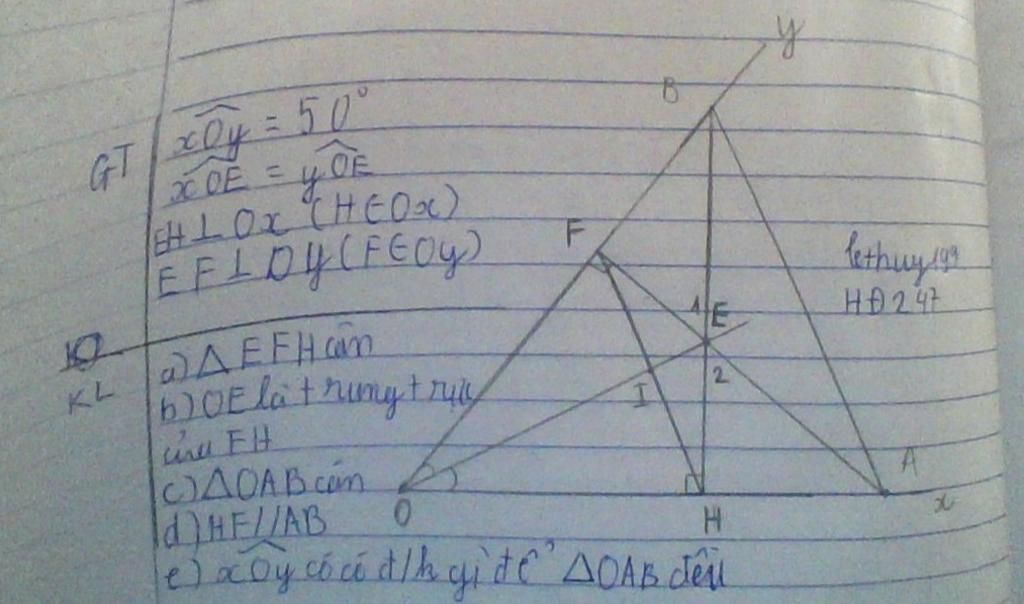 GT
xOy = 50°
xOE = yOE
EH ⊥ Ox (H ∈ Ox)
EF ⊥ Oy (F ∈ Oy)
KL
a) △ EFH cân
b) OE là trung trực
của FH
c) △OAB cân
d) HF // AB
e) xOy có có đ/k gì để △OAB đều
y
B
F
1 E
2
I
O
H
A
x
lethuy199
HĐ 247